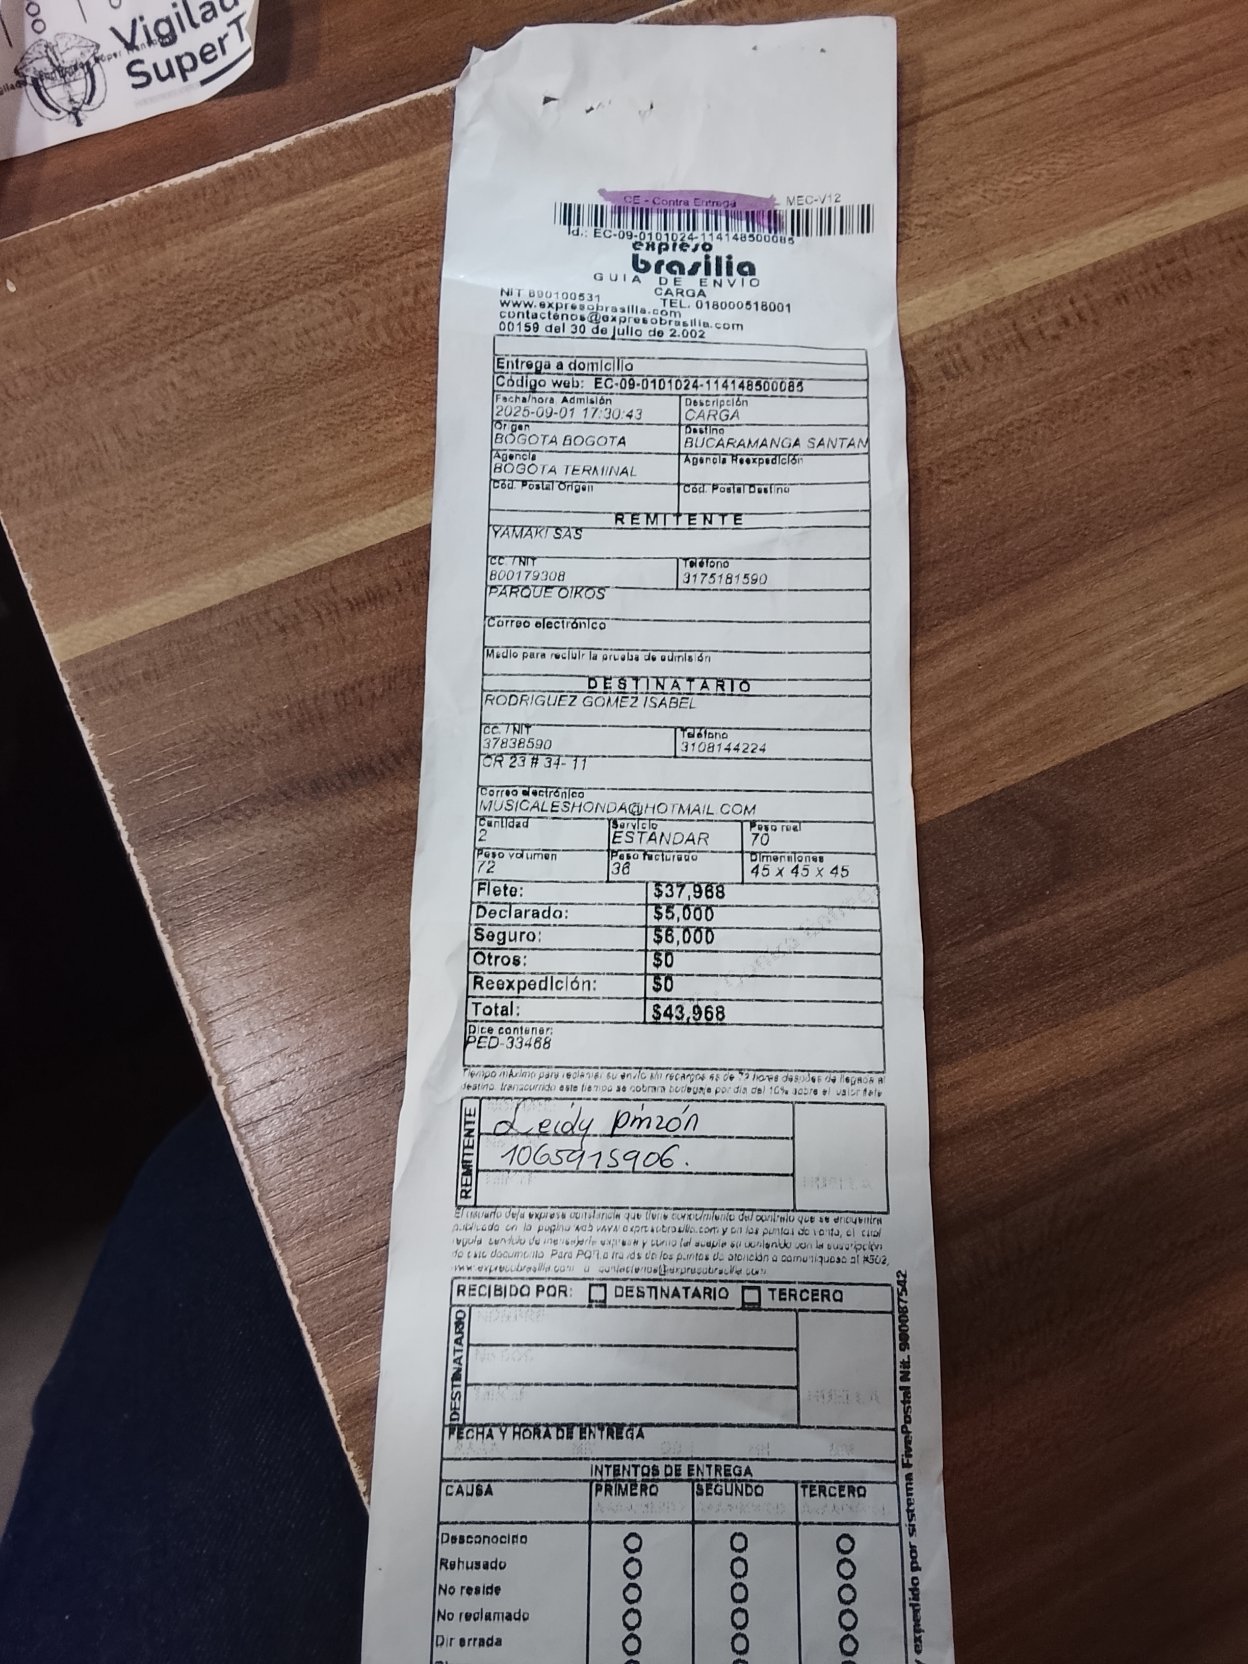 Vigilad
SuperT
CE - Contra Entrega
MEC-V12
Id.: EC-09-0101024-114148500085
expreso
brasilia
GUIA DE ENVIO
NIT 890100531 CARGA
www.expresobrasilia.com TEL. 018000518001
contactenos@expresobrasilia.com
00159 del 30 de julio de 2.002
Entrega a domicilio
Código web: EC-09-0101024-114148500085
Fecha/hora Admisión Descripción
2025-09-01 17:30:43 CARGA
Origen Destino
BOGOTA BOGOTA BUCARAMANGA SANTAN
Agencia Agencia Reexpedición
BOGOTA TERMINAL
Cód. Postal Origen Cód. Postal Destino
REMITENTE
YAMAKI SAS
CC. / NIT Teléfono
800179308 3175181590
PARQUE OIKOS
Correo electrónico
Medio para recibir la prueba de admisión
DESTINATARIO
RODRIGUEZ GOMEZ ISABEL
CC. / NIT Teléfono
37838590 3108144224
CR 23 # 34- 11
Correo electrónico
MUSICALESHONDA@HOTMAIL.COM
Cantidad Servicio Peso real
2 ESTANDAR 70
Peso volumen Peso facturado Dimensiones
72 36 45 x 45 x 45
Flete: $37,968
Declarado: $5,000
Seguro: $6,000
Otros: $0
Reexpedición: $0
Total: $43,968
Dice contener:
PED-33468
Tiempo máximo para reclamar su envío sin recargos es de 72 horas después de llegada al
destino, transcurrido este tiempo se cobrara bodegaje por día del 10% sobre el valor flete
REMITENTE
Leidy Pinzón
1065915906.
El usuario deja expresa constancia que tiene conocimiento del contrato que se encuentra
publicado en la pagina web www.expresobrasilia.com y en los puntos de venta, el cual
regula servicio de mensajería expresa y como tal acepta su contenido con la suscripción
de este documento. Para PQR a través de los puntos de atención o comuníquese al #502,
www.expresobrasilia.com o contactenos@expresobrasilia.com
RECIBIDO POR: DESTINATARIO TERCERO
DESTINATARIO
HUELLA
FECHA Y HORA DE ENTREGA
INTENTOS DE ENTREGA
CAUSA PRIMERO SEGUNDO TERCERO
Desconocido
Rehusado
No reside
No reclamado
Dir errada
y expedido por sistema FivePostal Nit. 900087542